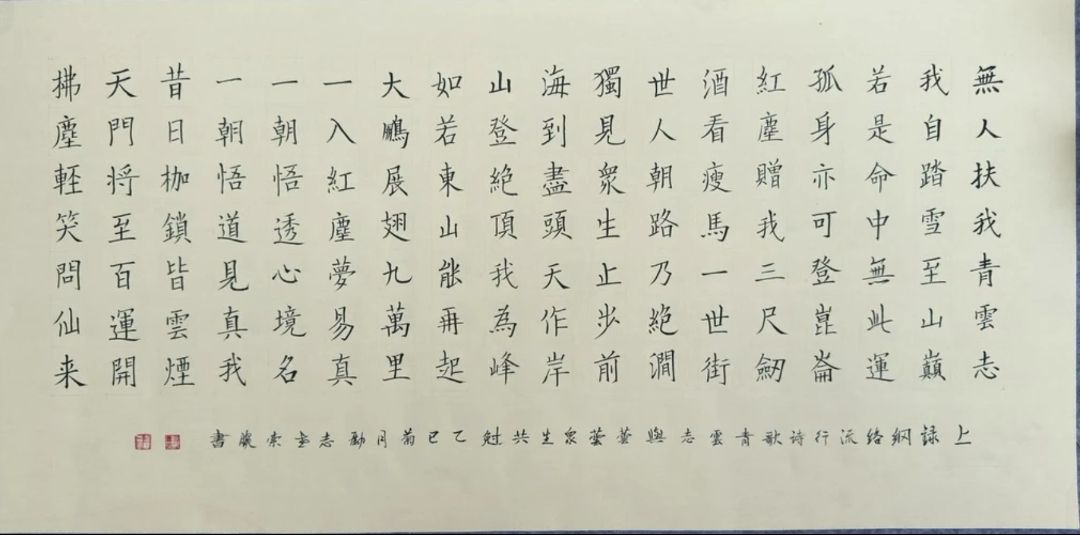 無人扶我青雲志
我自踏雪至山巔
若是命中無此運
孤身亦可登崑崙
紅塵贈我三尺劒
酒看瘦馬一世街
世人朝路乃絕澗
獨見衆生止步前
海到盡頭天作岸
山登絕頂我為峰
如若東山能再起
大鵬展翅九萬里
一入紅塵夢易真
一朝悟透心境名
一朝悟道見真我
昔日枷鎖皆雲煙
天門將至百運開
拂塵輕笑問仙来
上錄網絡流行诗歌青雲志與芸芸衆生共勉乙巳菊月勵志堂索廣書